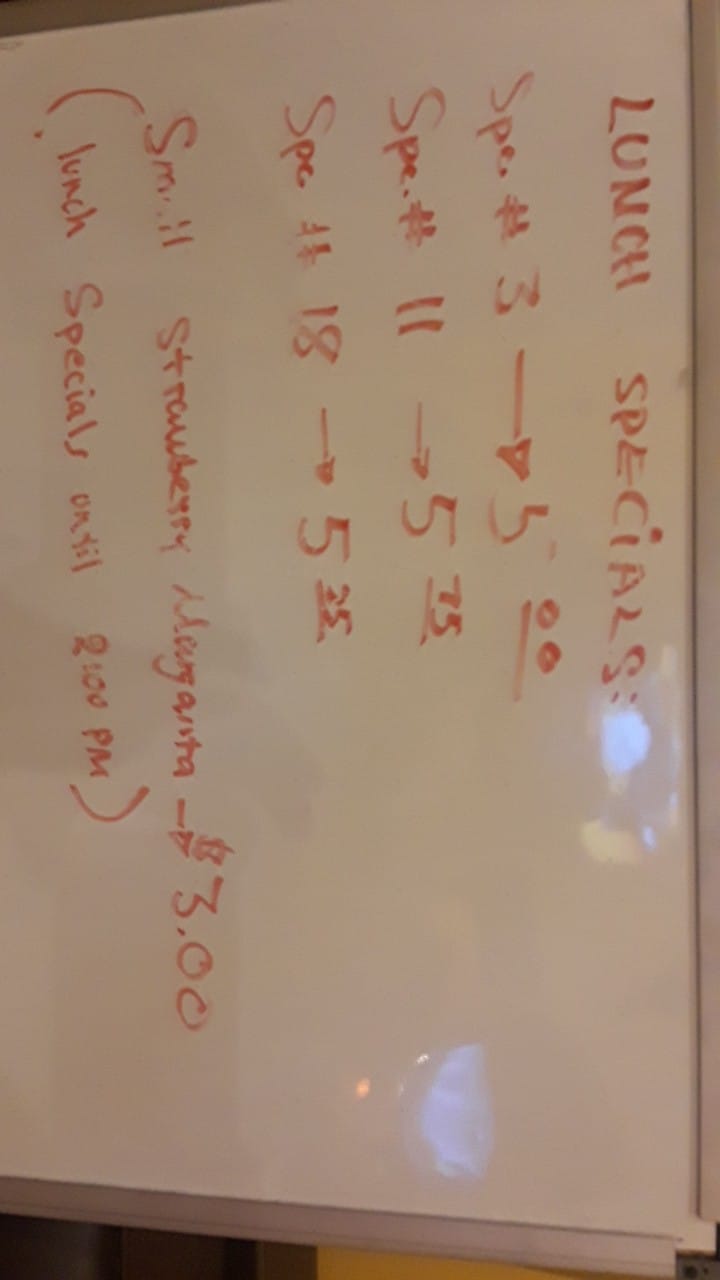 LUNCH SPECIALS:
Spc. # 3 → 5 00
Spc. # 11 → 5 75
Spc # 18 → 5 25
Small Strawberry Margarita → $3.00
(lunch Specials until 2:00 PM)